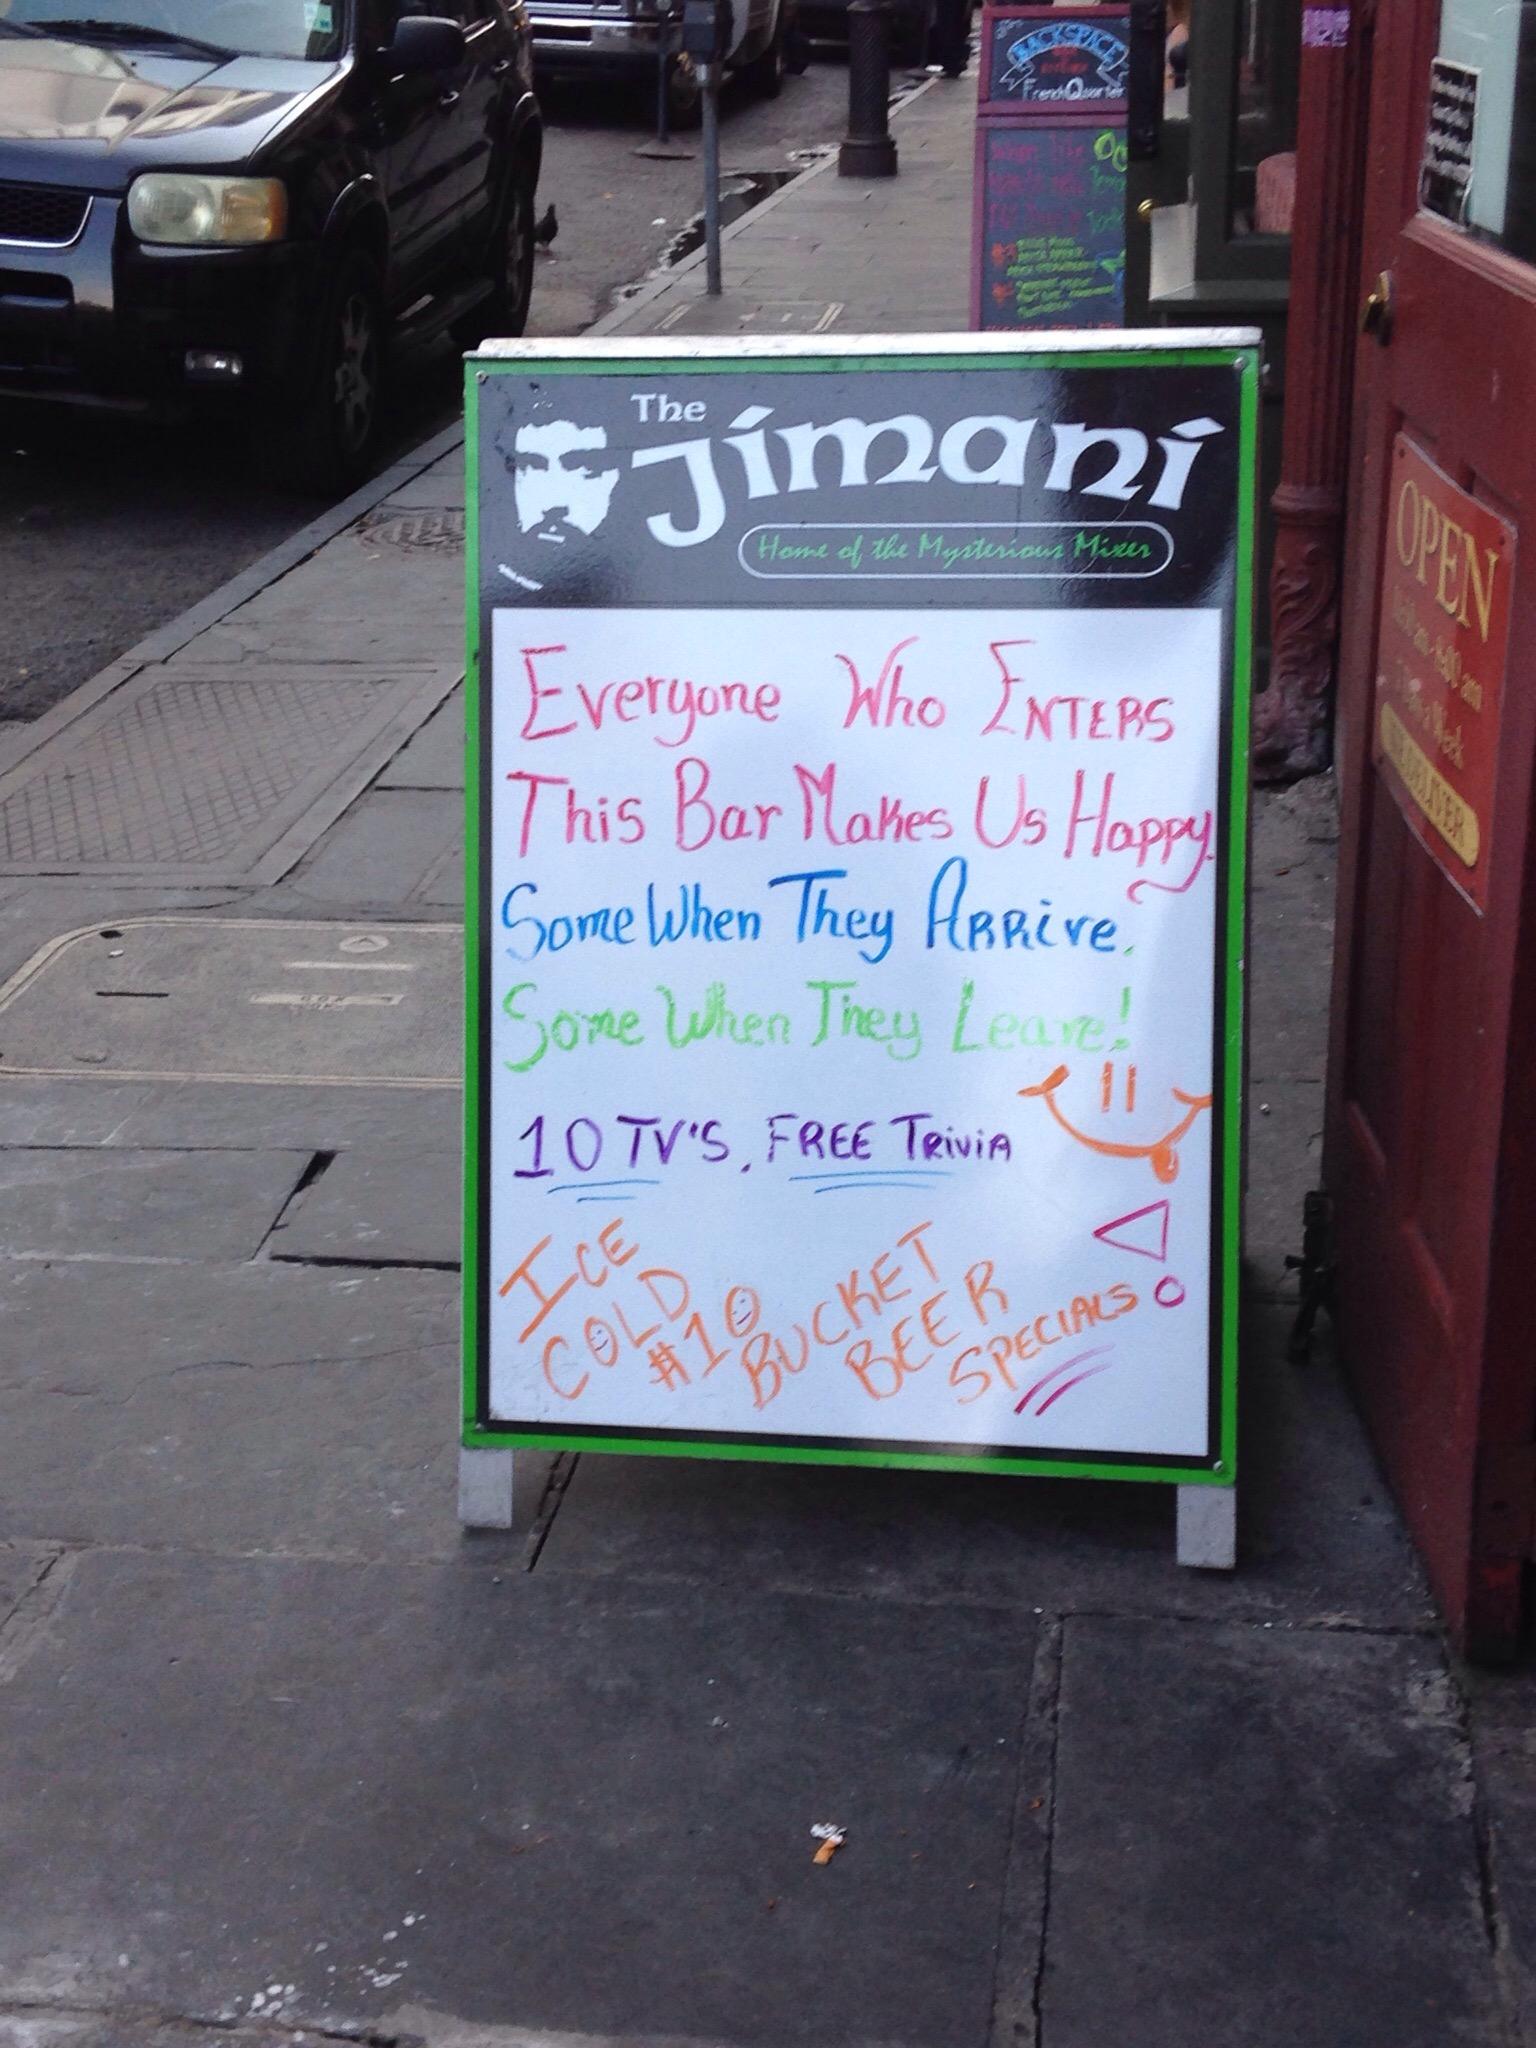 The
Jimani
Home of the Mysterious Mixer
Everyone Who Enters
This Bar Makes Us Happy.
Some When They Arrive.
Some When They Leave!
10 TV'S. FREE Trivia
ICE
COLD
#10
BUCKET
BEER
SPECIALS!
BACKSPACE
French Quarter
When life
OPEN
7 Days a Week
WE DELIVER